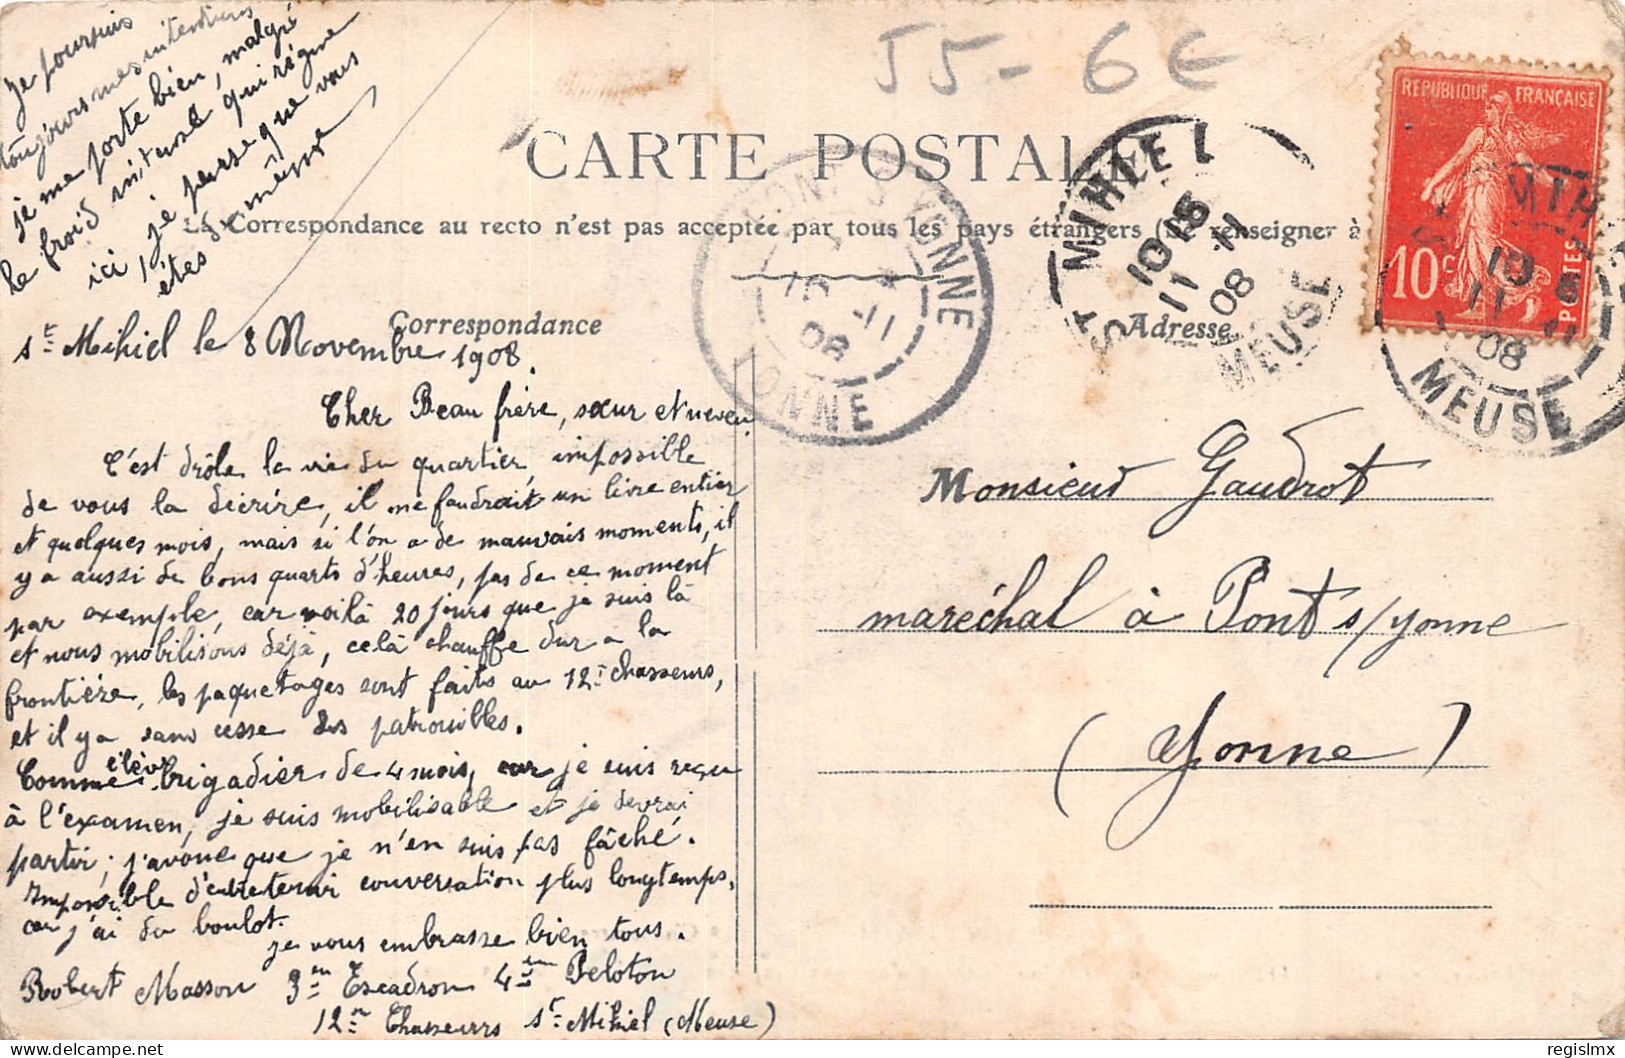 Je poursuis
toujours mes intentions
je me porte bien, malgré
le froid intense qui règne
ici, je pense que vous
êtes de même
55 - 6€
CARTE POSTALE
La Correspondance au recto n'est pas acceptée par tous les pays étrangers (Se renseigner à
Correspondance
Adresse
REPUBLIQUE FRANÇAISE
10c
POSTES
ST MIHIEL
10 15
11 11
08
MEUSE
10
11
08
MEUSE
PONT S YONNE
10 11
08
YONNE
St Mihiel le 8 Novembre 1908
Cher Beau frère, sœur et neveu
C'est drôle la vie du quartier, impossible
de vous la décrire, il me faudrait un livre entier
et quelques mois, mais si l'on a de mauvais moments, il
y a aussi de bons quarts d'heures, pas de ce moment
par exemple, car voilà 20 jours que je suis là
et nous mobilisons déjà, celà chauffe dur a la
frontière, les paquetages sont faits au 12e chasseurs,
et il y a sans cesse des patrouilles.
Comme élève brigadier de 4 mois, car je suis reçu
à l'examen, je suis mobilisable et je devrai
partir; j'avoue que je n'en suis pas fâché.
Impossible d'entretenir conversation plus longtemps,
car j'ai du boulot.
je vous embrasse bien tous.
Robert Masson 3em Escadron 4em Peloton
12em Chasseurs St Mihiel (Meuse)
Monsieur Gaudrot
maréchal à Pont s/yonne
(Yonne)
regislmx